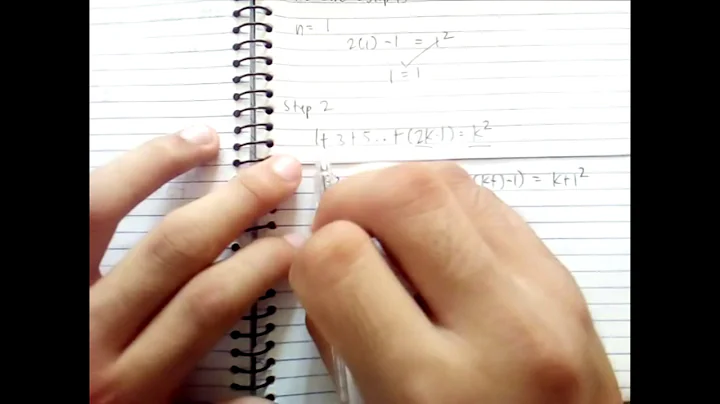 n= 1
2(1) -1 = 1²
1 = 1
Step 2
1+ 3+5...+(2k-1)= k²
(k+)-1) = k+1²